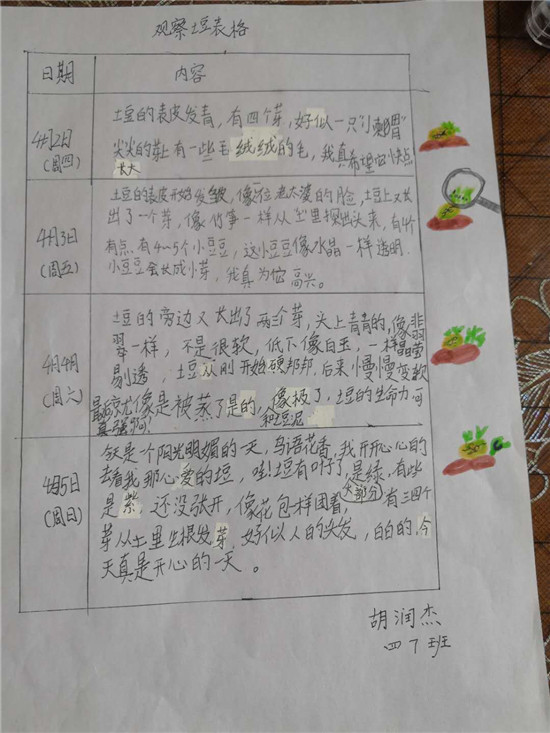 观察土豆表格
日期 内容
4月2日
(周四)
土豆的表皮发青，有四个芽，好似一只小刺猬
尖尖的芽上有一些毛绒绒的毛，我真希望它快点
长大
4月3日
(周五)
土豆的表皮开始发皱，像一位老太婆的脸，土豆上又长
出了一个芽，像竹笋一样从土里探出头来，
有点有4~5个小豆豆，这小豆豆像水晶一样透明.
小豆豆会长成小芽，我真为它高兴。
4月4日
(周六)
土豆的旁边又长出了两三个芽，头上青青的，像非
翠一样，不是很软，低下像白玉，一样晶莹
剔透，土豆从刚开始硬邦邦，后来慢慢变软
最后就像是被蒸了是的，像极了，土豆的生命力可
真强啊! 和土豆泥
4月5日
(周日)
今天是个阳光明媚的一天，鸟语花香，我开开心心的
去看我那心爱的土豆，哇!土豆有叶子了，是绿，有些
是紫，还没张开，像花包一样团着，有三四个
(大部分)
芽从土里生根发芽，好似人的头发，白的的，今
天真是开心的一天。
胡润杰
四7班